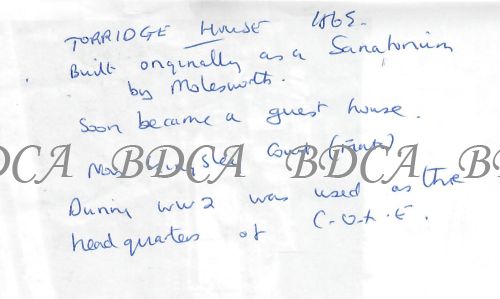 TORRIDGE HOUSE 1865.
Built originally as a Sanatorium
by Molesworth.
Soon became a guest house.
Now Kingsley Court (Flats)
BDCA BDCA BDCA BDCA
During WW2 was used as the
headquarters of C.O.X.E.